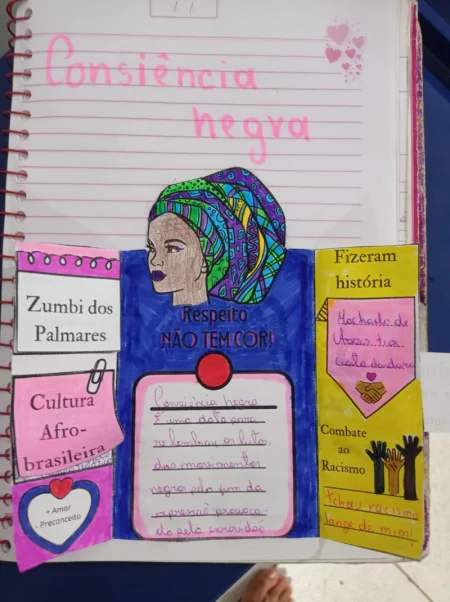 Consiência
negra
Respeito
NÃO TEM COR!
Zumbi dos
Palmares
Cultura
Afro-
brasileira
+ Amor
- Preconceito
Consiência negra
É uma data para
relembrar as luta
dos movimentos
negros pelo fim da
opressão provoca-
do pela escravidão
Fizeram
história
Machado de
Assis
Combate
ao
Racismo
tchau racismo
longe de mim!